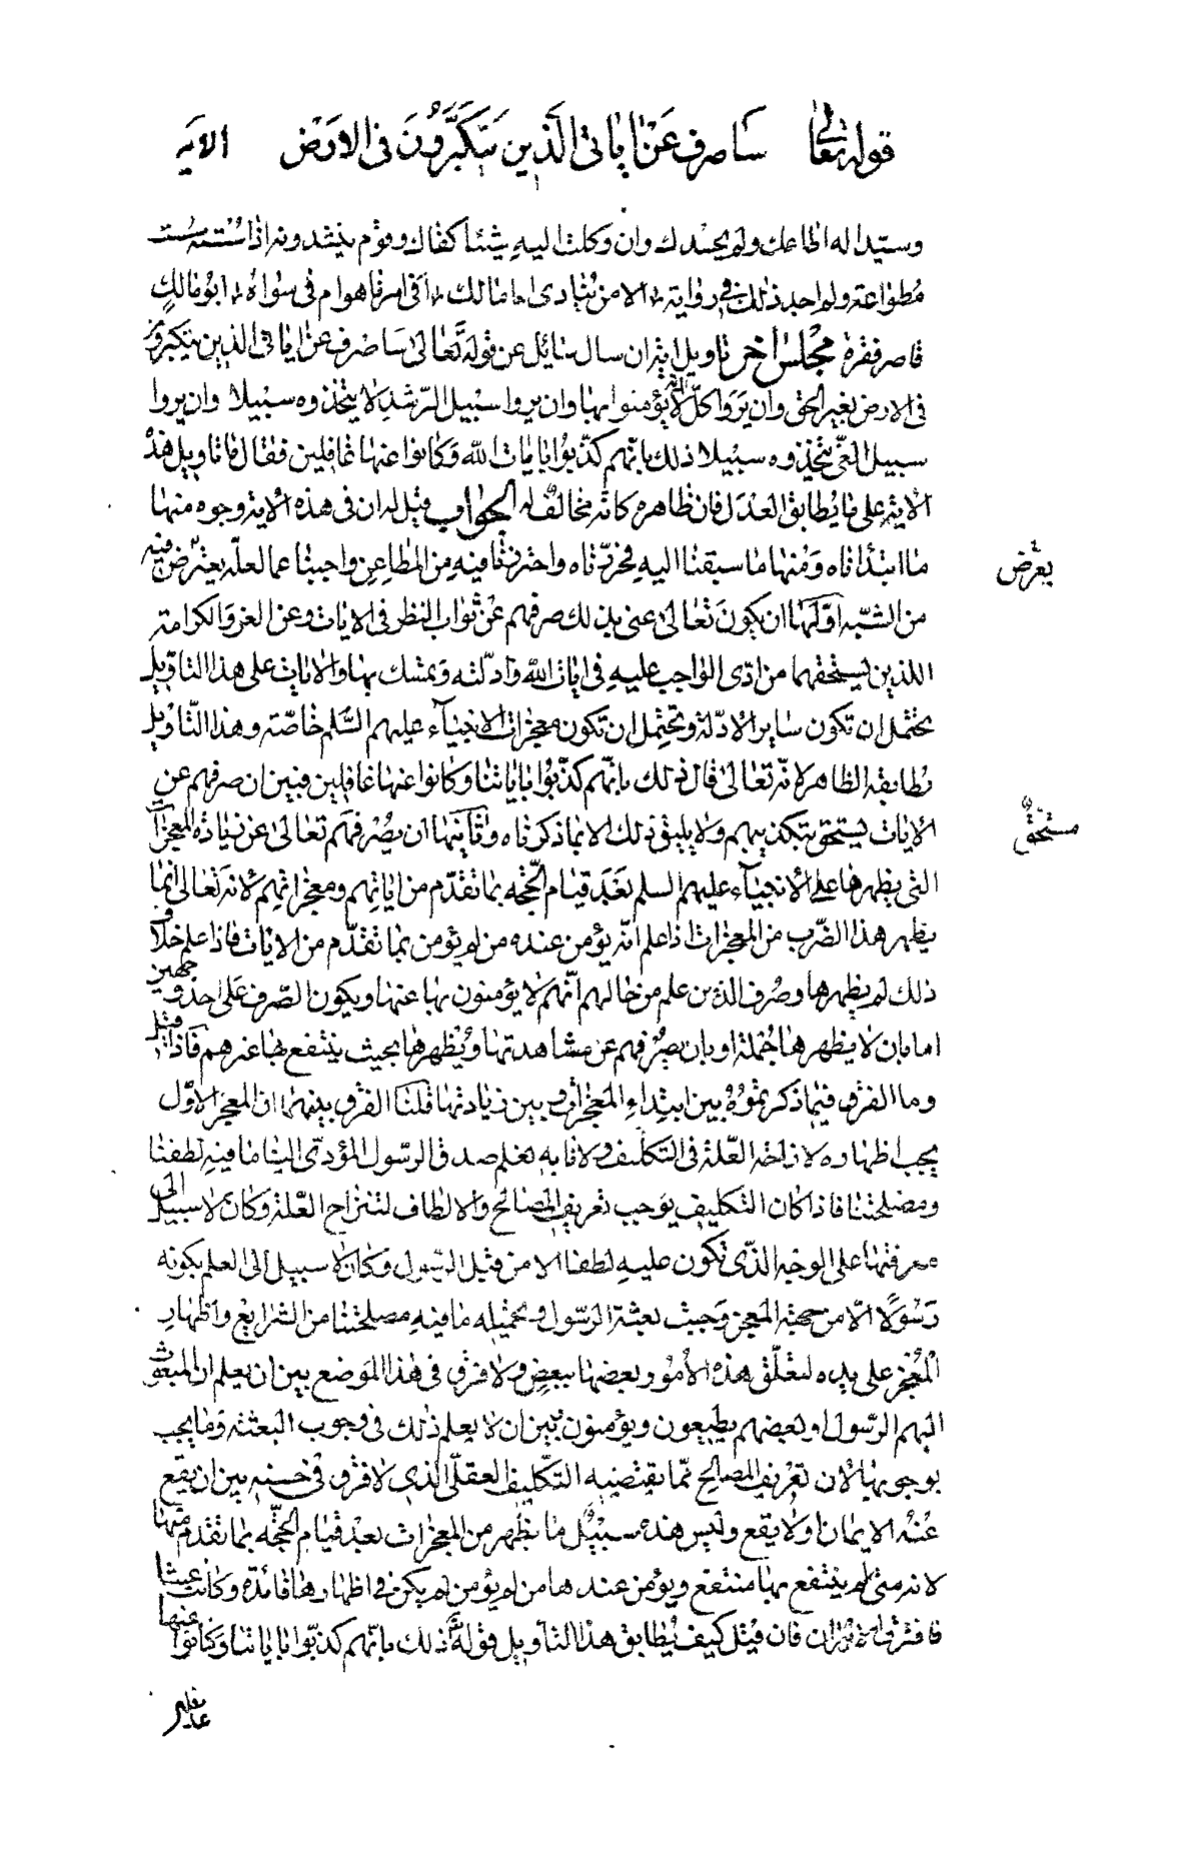 قوله تعالى ساصرف عن اياتى الذين يتكبرون فى الارض الاية
وسيد اله اطاعك ولم يحسدك وان وكلت اليه شيئا كفاك وقوم ينشدونه اذا سسته سست
مطواعة ولم اجد ذلك فى رواية الامن يتنادى اما مالك ان امر ناهوام فى سواه ابو مالك
قاصر فقره مجلس اخر تاويل اية ان سال سائل عن قوله تعالى ساصرف عن اياتى الذين يتكبرون
فى الارض بغير الحق وان يروا كل اية لا يؤمنوا بها وان يروا سبيل الرشد لا يتخذوه سبيلا وان يروا
سبيل الغى يتخذوه سبيلا ذلك بانهم كذبوا بايات الله وكانوا عنها غافلين فقال ما تاويل هذه
الاية على ما يطابق العدل فان ظاهره كانه مخالف له الجواب قيل له ان فى هذه الاية وجوه منها
ما ابتدأناه ومنها ما سبقنا اليه فحررناه واحترزنا فيه من المطاعن واجبنا عما لعله يعترض فيه
يعرض
من الشبه اولها ان يكون تعالى عنى بذلك صرفهم عن ثواب النظر فى الايات وعن العز والكرامة
اللذين يستحقهما من ادى الواجب عليه فى ايات الله وادلته وتمسك بها والايات على هذا التاويل
يحتمل ان تكون ساير الادلة وتحتمل ان تكون معجزات الانبياء عليهم السلم خاصة وهذا التاويل
يطابقه الظاهر لانه تعالى قال ذلك بانهم كذبوا باياتنا وكانوا عنها غافلين فبين ان صرفهم عن
الايات يستحق بتكذيبهم ولا يليق ذلك الا بما ذكرناه وثانيها ان يصرفهم تعالى عن زيادة المعجزات
مستحق
التى يظهرها على الانبياء عليهم السلم بعد قيام الحجه بما تقدم من اياتهم ومعجزاتهم لانه تعالى انما
يظهر هذا الضرب من المعجزات اذا علم انه يؤمن عنده من لم يؤمن بما تقدم من الايات فاذا علم خلاف
ذلك لم يظهرها وصرف الذين علم من حالهم انهم لا يؤمنون بها عنها ويكون الصرف على احد وجهين
اما بان لا يظهرها جملة او بان يصرفهم عن مشاهدتها ويظهرها بحيث ينتفع بها غيرهم فاذا قيل
وما الفرق فيما ذكرتموه بين ابتداء المعجزات وبين زيادتها قلنا الفرق بينهما ان المعجز الاول
يجب اظهاره لازاحة العلة فى التكليف ولانا به نعلم صدق الرسول المؤدى الينا ما فيه لطفنا
ومصلحتنا فاذا كان التكليف يوجب تعريف المصالح والالطاف لتنزاح العلة وكان لا سبيل الى
معرفتها على الوجه الذى تكون عليه لطفا الا من قبل الرسول وكان لا سبيل الى العلم بكونه
رسولا الا من جهة المعجز وجبت بعثة الرسول وتحميله ما فيه مصلحتنا من الشرايع واظهار
المعجز على يده لتعلق هذه الامور بعضها ببعض ولا فرق فى هذا الموضع بين ان يعلم ان المبعوث
اليهم الرسول او بعضهم يطيعون ويؤمنون وبين ان لا يعلم ذلك فى وجوب البعثة وما يجب
بوجوبها لان تعريف المصالح مما يقتضيه التكليف العقلى الذى لا فرق فى حسنه بين ان يقع
عنده الايمان اولا يقع وليس هذه سبيل ما يظهر من المعجزات بعد قيام الحجه بما تقدم منها
لانه متى لم ينتفع بها منتفع ويؤمن عندها من لم يؤمن لم يكن فى اظهارها فائدة وكانت عبثا
فافترق الامران فان قيل كيف يطابق هذا التاويل قوله تعالى ذلك بانهم كذبوا باياتنا وكانوا عنها
غافلين